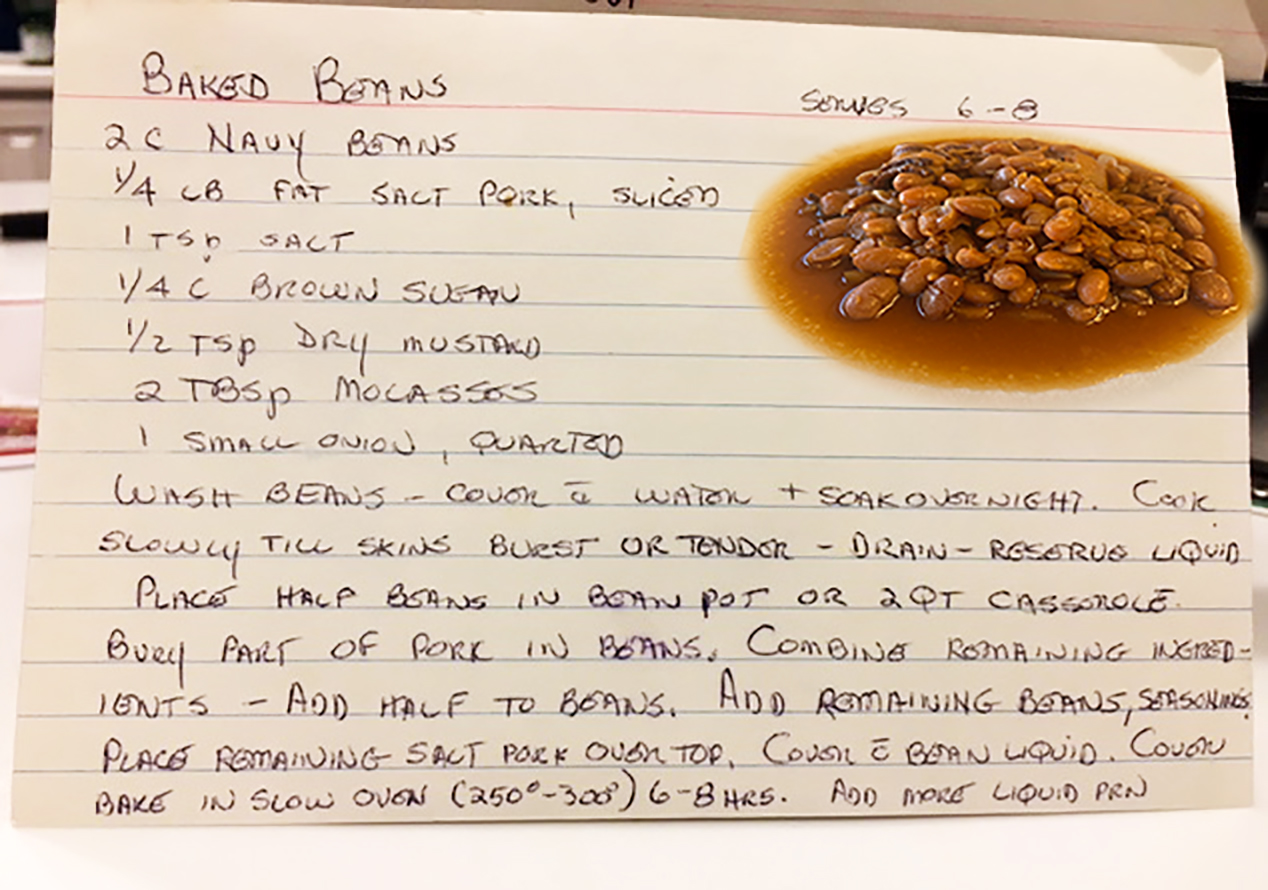 BAKED BEANS
SERVES 6-8
2 C NAVY BEANS
1/4 LB FAT SALT PORK, SLICED
1 TSp SALT
1/4 C BROWN SUGAR
1/2 TSp DRY MUSTARD
2 TBSp MOLASSES
1 SMALL ONION, QUARTED
WASH BEANS - COVER c̄ WATER + SOAK OVERNIGHT. COOK
SLOWLY TILL SKINS BURST OR TENDER - DRAIN - RESERVE LIQUID
PLACE HALF BEANS IN BEAN POT OR 2 QT CASSEROLE.
BURY PART OF PORK IN BEANS. COMBINE REMAINING INGRED-
IENTS - ADD HALF TO BEANS. ADD REMAINING BEANS, SEASONINGS.
PLACE REMAINING SALT PORK OVER TOP. COVER c̄ BEAN LIQUID. COVER
BAKE IN SLOW OVEN (250°-300°) 6-8 HRS. ADD MORE LIQUID PRN